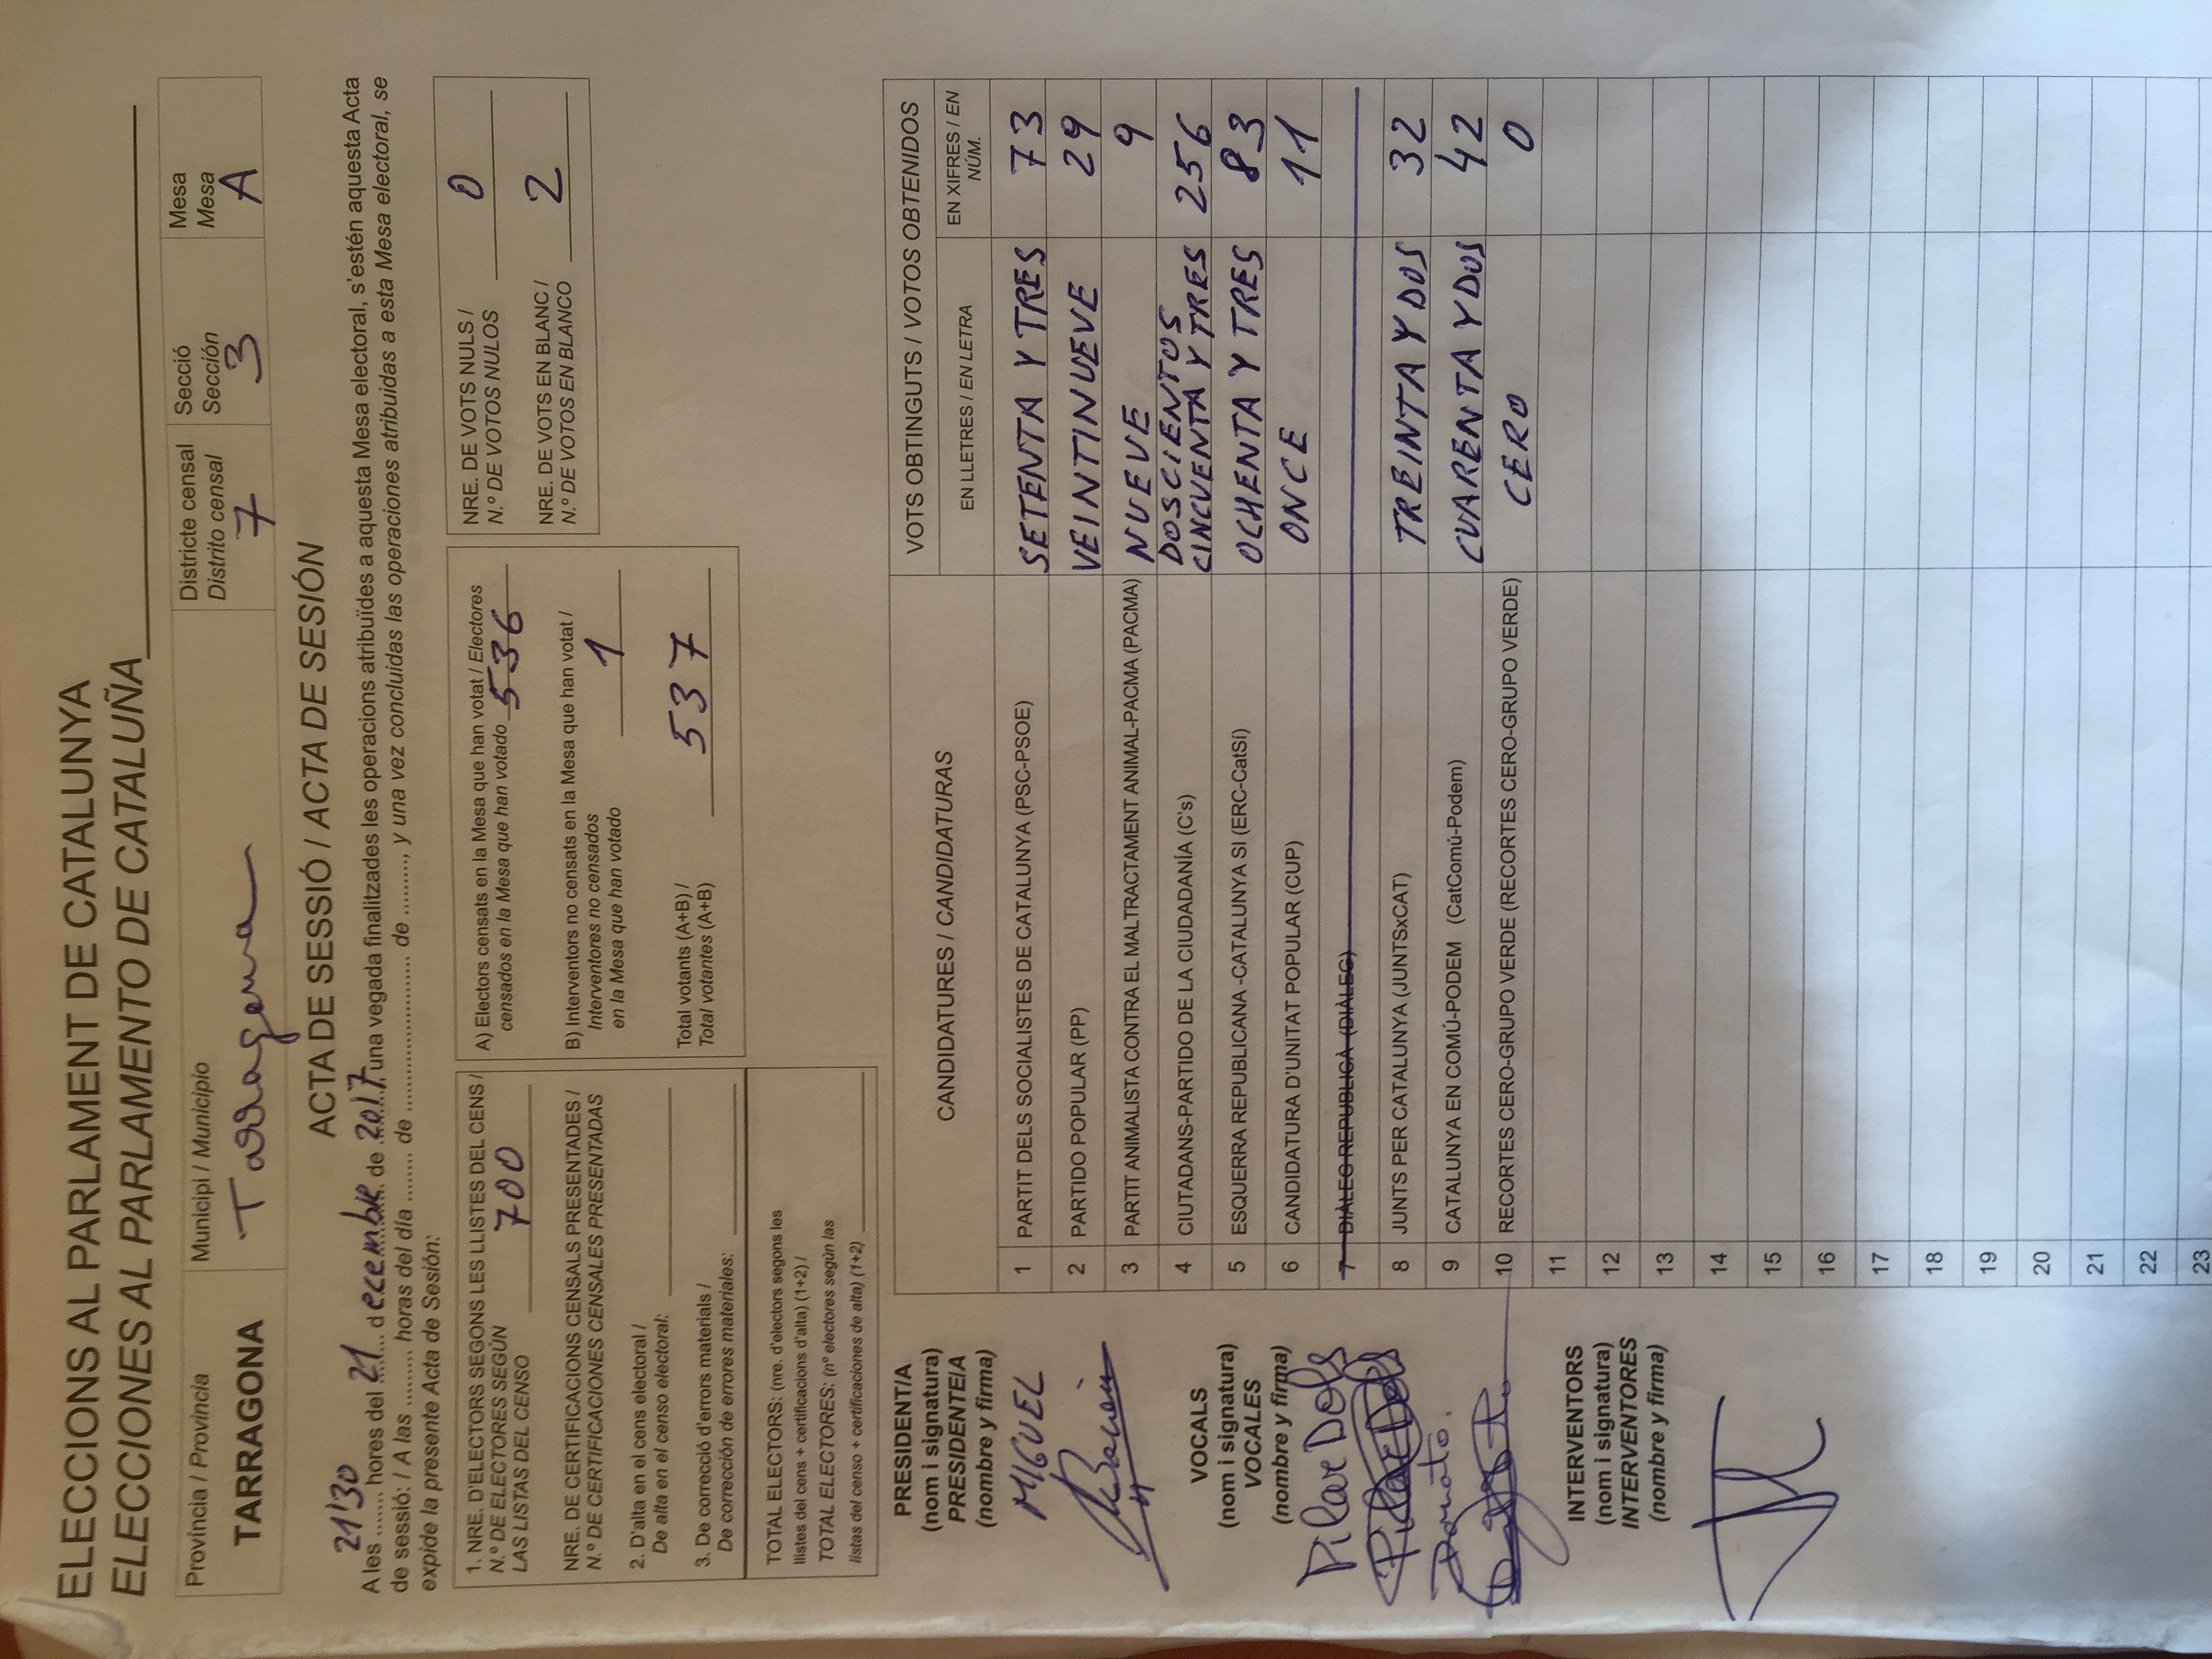 ELECCIONS AL PARLAMENT DE CATALUNYA
ELECCIONES AL PARLAMENTO DE CATALUÑA
Província / Provincia
TARRAGONA
Municipi / Municipio
Tarragona
Districte censal
Distrito censal
7
Secció
Sección
3
Mesa
Mesa
A
ACTA DE SESSIÓ / ACTA DE SESIÓN
21'30
A les ....... hores del 21 decembre de 2017, una vegada finalitzades les operacions atribuïdes a aquesta Mesa electoral, s'estén aquesta Acta
de sessió: / A las ......... horas del día ........ de ......................... de ........., y una vez concluidas las operaciones atribuidas a esta Mesa electoral, se
expide la presente Acta de Sesión:
1. NRE. D'ELECTORS SEGONS LES LLISTES DEL CENS /
N.º DE ELECTORES SEGÚN
LAS LISTAS DEL CENSO 700
NRE. DE CERTIFICACIONS CENSALS PRESENTADES /
N.º DE CERTIFICACIONES CENSALES PRESENTADAS
2. D'alta en el cens electoral /
De alta en el censo electoral:
3. De correcció d'errors materials /
De corrección de errores materiales:
TOTAL ELECTORS: (nre. d'electors segons les
llistes del cens + certificacions d'alta) (1+2) /
TOTAL ELECTORES: (nº electores según las
listas del censo + certificaciones de alta) (1+2)
A) Electors censats en la Mesa que han votat / Electores
censados en la Mesa que han votado 536
B) Interventors no censats en la Mesa que han votat /
Interventores no censados
en la Mesa que han votado 1
Total votants (A+B) /
Total votantes (A+B) 537
NRE. DE VOTS NULS /
N.º DE VOTOS NULOS 0
NRE. DE VOTS EN BLANC /
N.º DE VOTOS EN BLANCO 2
PRESIDENT/A
(nom i signatura)
PRESIDENTE/A
(nombre y firma)
MIGUEL
VOCALS
(nom i signatura)
VOCALES
(nombre y firma)
Pilar Dols
Pilar Dols
Donato.
INTERVENTORS
(nom i signatura)
INTERVENTORES
(nombre y firma)
CANDIDATURES / CANDIDATURAS
VOTS OBTINGUTS / VOTOS OBTENIDOS
EN LLETRES / EN LETRA
EN XIFRES / EN
NÚM.
1 PARTIT DELS SOCIALISTES DE CATALUNYA (PSC-PSOE) SETENTA Y TRES 73
2 PARTIDO POPULAR (PP) VEINTINUEVE 29
3 PARTIT ANIMALISTA CONTRA EL MALTRACTAMENT ANIMAL-PACMA (PACMA) NUEVE 9
4 CIUTADANS-PARTIDO DE LA CIUDADANÍA (C's) DOSCIENTOS
CINCUENTA Y TRES 256
5 ESQUERRA REPUBLICANA -CATALUNYA SI (ERC-CatSí) OCHENTA Y TRES 83
6 CANDIDATURA D'UNITAT POPULAR (CUP) ONCE 11
7 DIÀLEG REPUBLICÀ (DIÀLEG)
8 JUNTS PER CATALUNYA (JUNTSxCAT) TREINTA Y DOS 32
9 CATALUNYA EN COMÚ-PODEM (CatComú-Podem) CUARENTA Y DOS 42
10 RECORTES CERO-GRUPO VERDE (RECORTES CERO-GRUPO VERDE) CERO 0
11
12
13
14
15
16
17
18
19
20
21
22
23